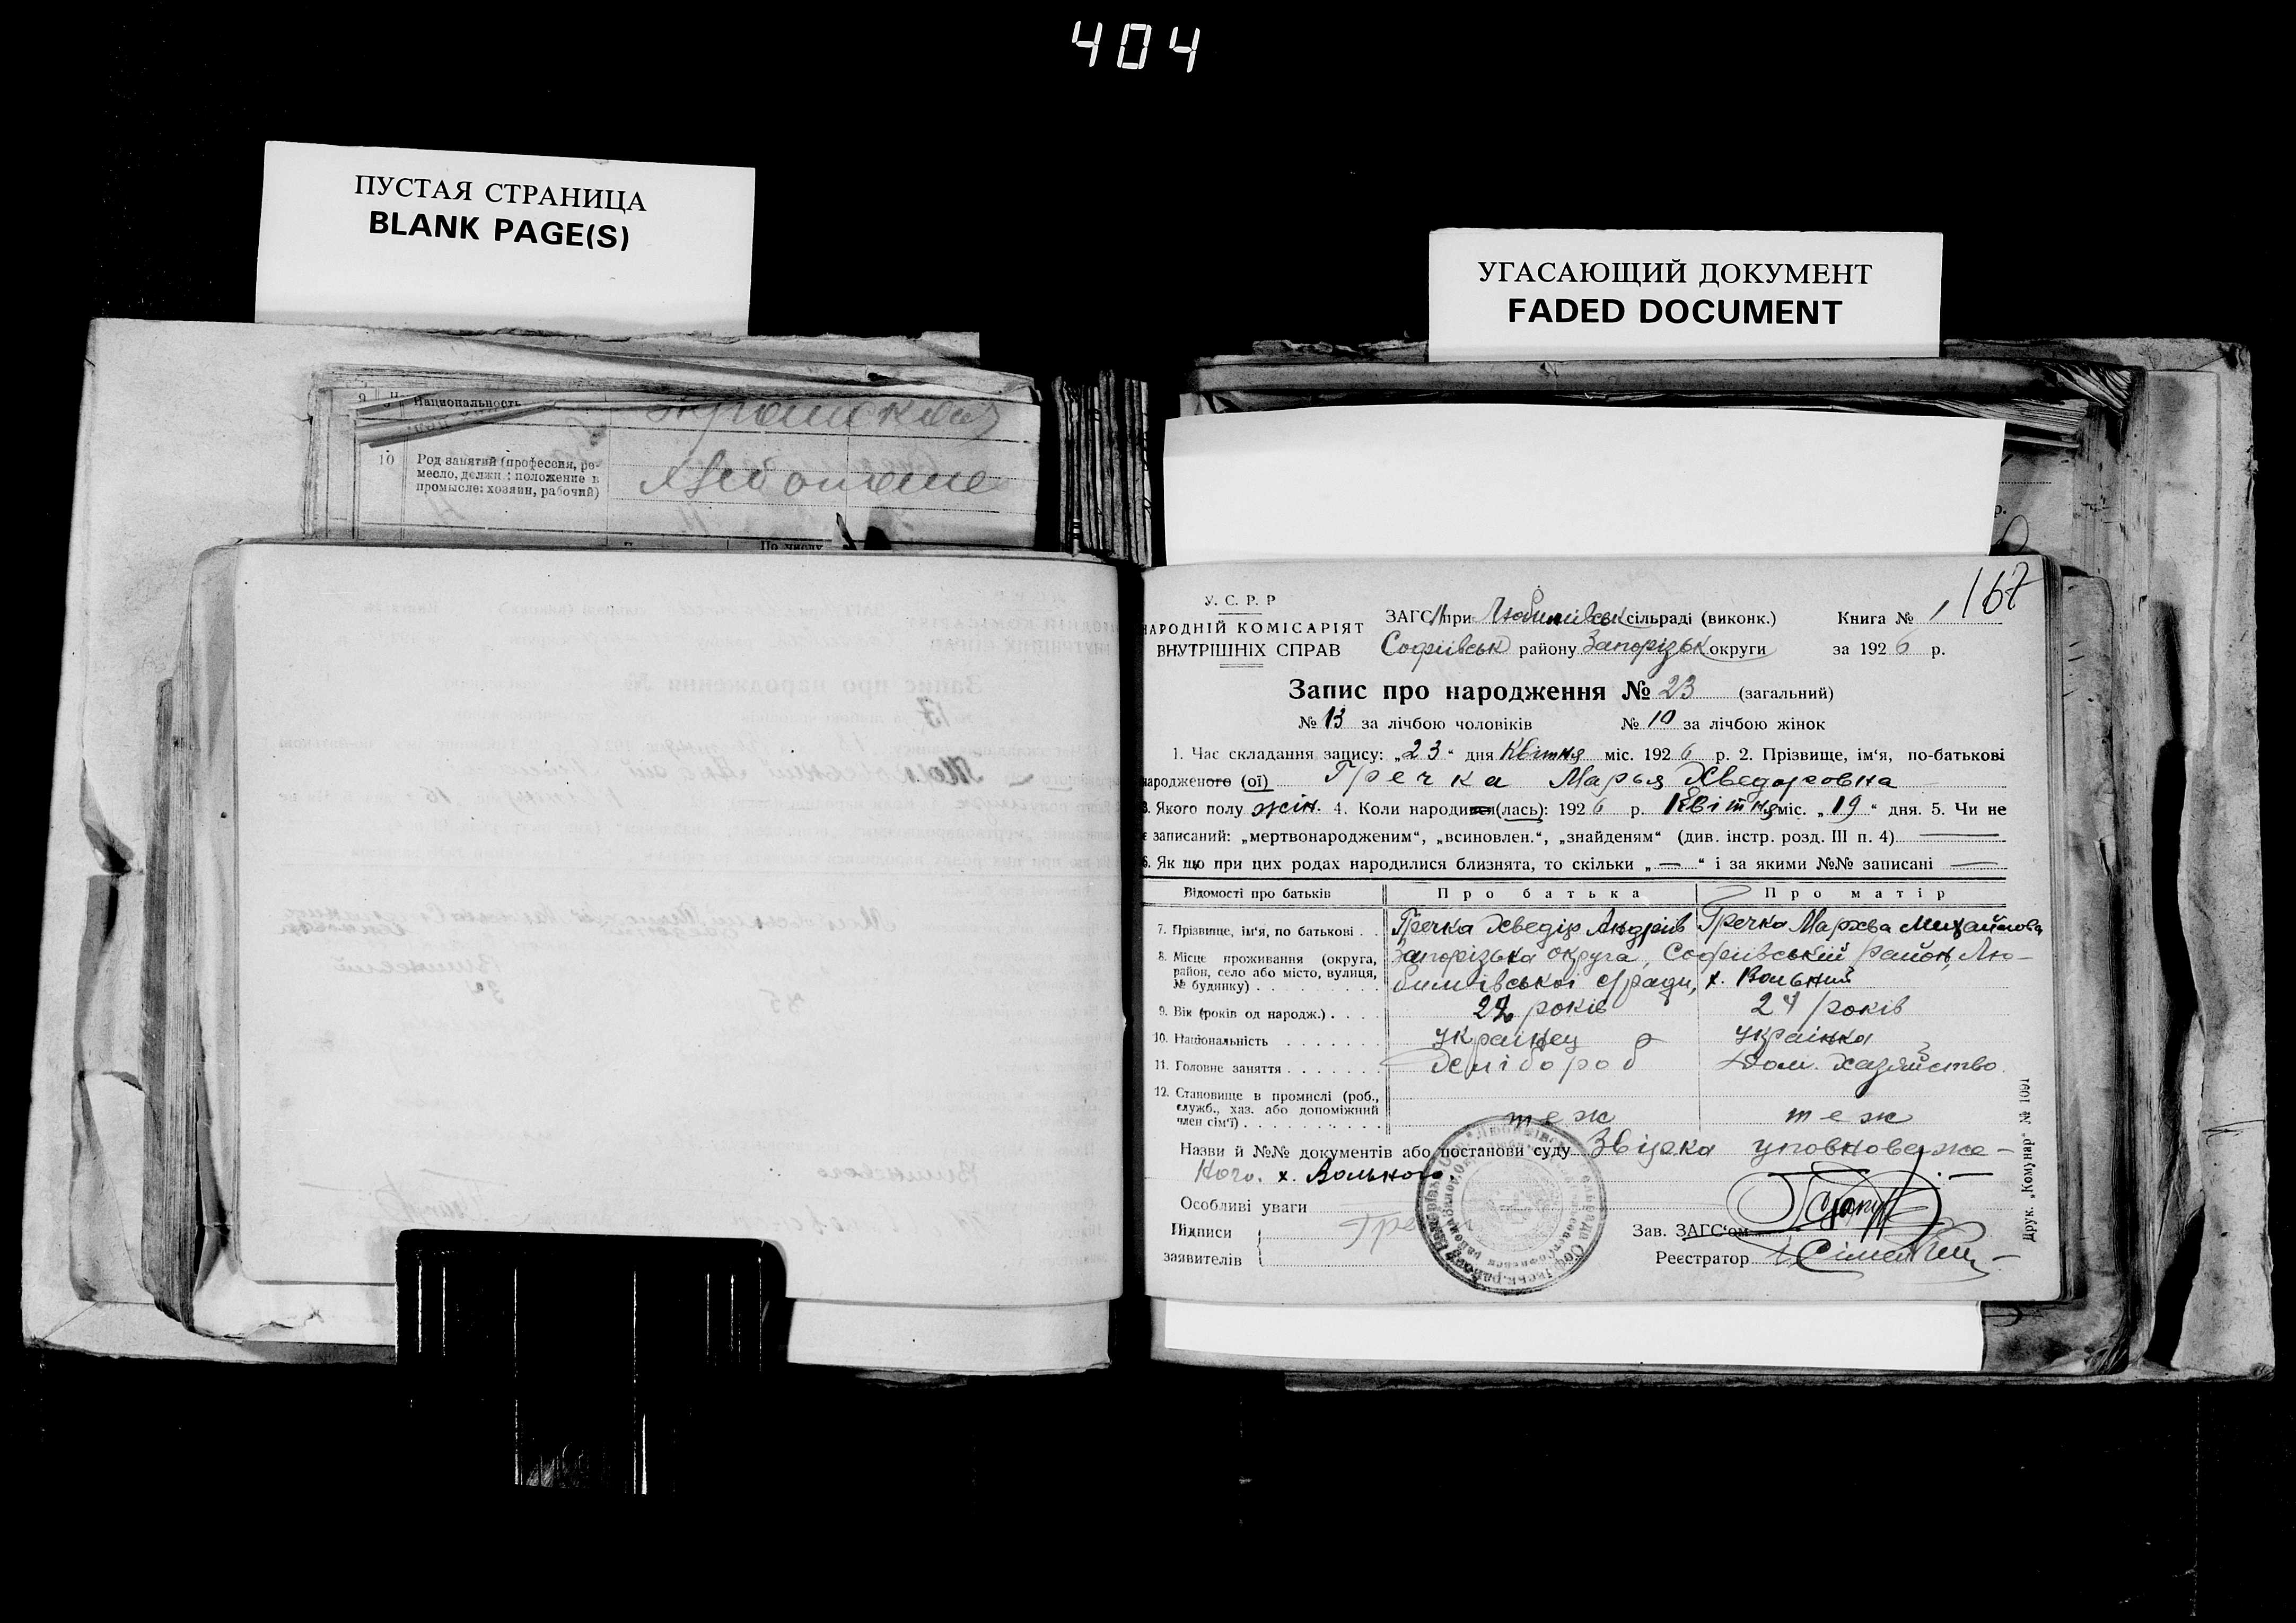 404
ПУСТАЯ СТРАНИЦА
BLANK PAGE(S)
Национальность
10 Род занятий (профессия, ре-
месло, должн.: положение в
промысле: хозяин, рабочий)
По числу
УГАСАЮЩИЙ ДОКУМЕНТ
FADED DOCUMENT
167
У. С. Р. Р
НАРОДНІЙ КОМІСАРІЯТ
ВНУТРІШНІХ СПРАВ
ЗАГС при Любимівськ сільраді (виконк.) Книга № 1
Софіївськ району Запорізьк округи за 1926 р.
Запис про народження № 23 (загальний)
№ 13 за лічбою чоловіків № 10 за лічбою жінок
1. Час складання запису: „23“ дня Квітня міс. 1926 р. 2. Прізвище, ім‘я, по-батькові
народженого (ої) Гречка Марья Хведоровна
3. Якого полу жін. 4. Коли народився(лась): 1926 р. Квітня міс. „19“ дня. 5. Чи не
є записаний: „мертвонародженим“, „всиновлен.“, „знайденям“ (див. інстр. розд. III п. 4)
6. Як що при цих родах народилися близнята, то скільки „—“ і за якими №№ записані —
Відомості про батьків Про батька Про матір
7. Прізвище, ім‘я, по батькові . . Гречка Хведір Андріїв Гречка Марфа Михайлова
8. Місце проживання (округа, район, село або місто, вулиця, № будинку) . . . . Запорізька округа, Софіївський район, Лю-
бимівської с/ради, х. Вольний
9. Вік (років од народж.) . . . . років 24 років
10. Національність . . . . . . . українец українка
11. Головне заняття . . . . . . . Хлібороб Дом. хазяйство
12. Становище в промислі (роб., служб., хаз. або допоміжний член сім‘ї) . . . . теж теж
Назви й №№ документів або постанови суду Звістка уповноваже-
ного х. Вольного
Особливі уваги
Підписи
заявителів
Зав. ЗАГС‘ом
Реєстратор
Друк. „Комунар“ № 1091